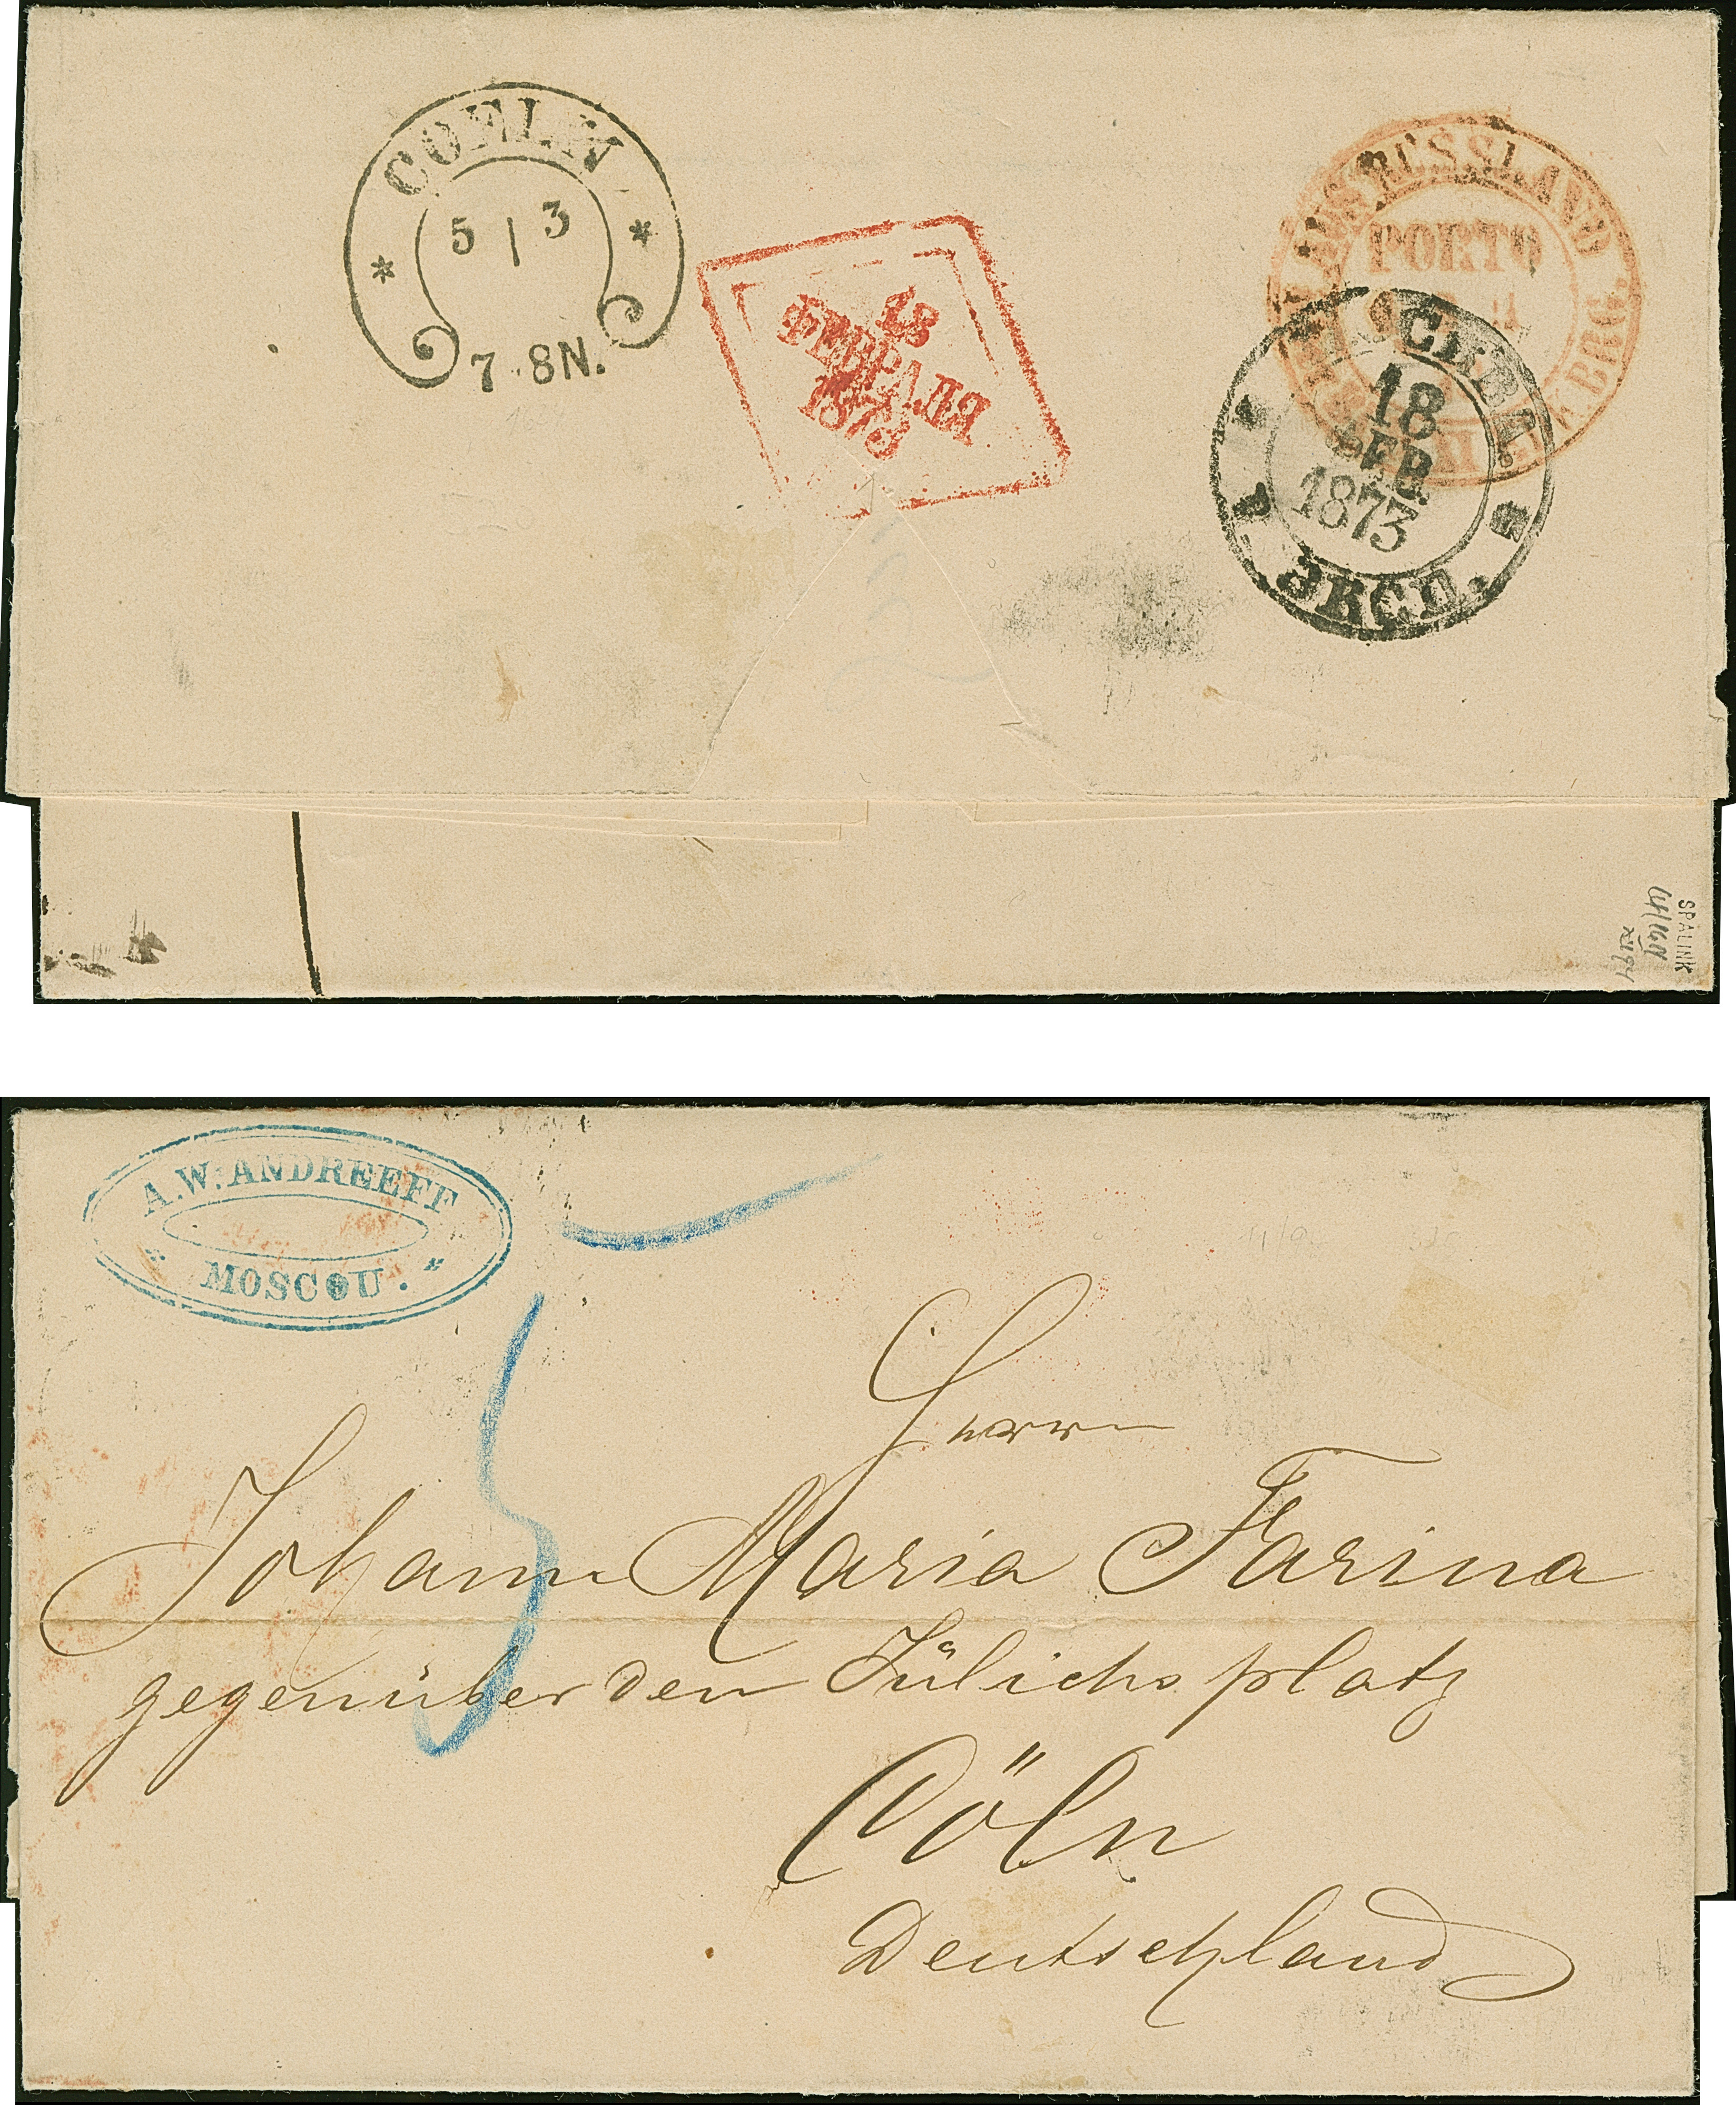 COELN
5 | 3
7-8N.
18
ФЕВРАЛЯ
1873
AUS RUSSLAND
PORTO
BRG.
МОСКВА.
18
ФЕВ.
1873
ЭКСП.
SPALINK
A.W. ANDREEFF
MOSCOU.
5
Herrn
Johann Maria Farina
gegenüber den Jülichs platz
Cöln
Deutschland